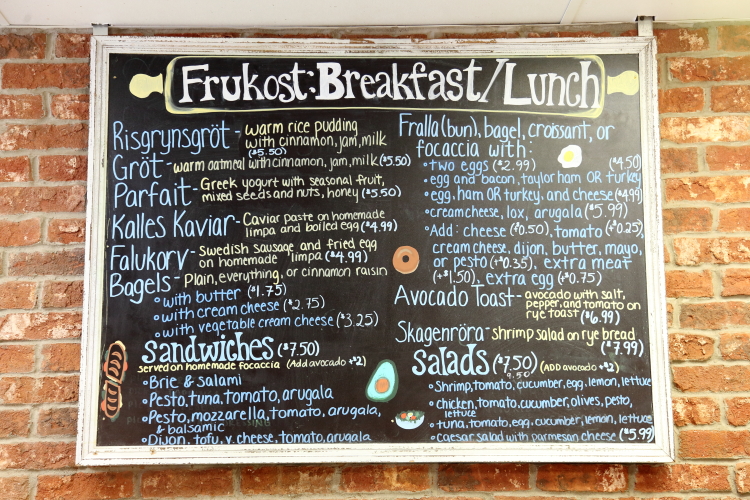 Frukost:Breakfast/Lunch
Risgrynsgröt - warm rice pudding
with cinnamon, jam, milk
($5.50)
Gröt - warm oatmeal with cinnamon, jam, milk ($5.50)
Parfait - Greek yogurt with seasonal fruit,
mixed seeds and nuts, honey ($5.50)
Kalles Kaviar - Caviar paste on homemade
limpa and boiled egg ($4.99)
Falukorv - Swedish sausage and fried egg
on homemade limpa ($4.99)
Bagels - Plain, everything, or cinnamon raisin
• with butter ($1.75)
• with cream cheese ($2.75)
• with vegetable cream cheese ($3.25)
Sandwiches ($7.50)
served on homemade focaccia (Add avocado +$2)
• Brie & salami
• Pesto, tuna, tomato, arugala
• Pesto, mozzarella, tomato, arugala,
& balsamic
• Dijon, tofu, v. cheese, tomato, arugala
Fralla (bun), bagel, croissant, or
focaccia with:
• two eggs ($2.99)
($4.50)
• egg and bacon, taylor ham OR turkey
• egg, ham OR turkey, and cheese ($4.99)
• cream cheese, lox, arugala ($5.99)
• Add: cheese ($0.50), tomato (+$0.25),
cream cheese, dijon, butter, mayo,
or pesto (+$0.35), extra meat
(+$1.50), extra egg (+$0.75)
Avocado Toast - avocado with salt,
pepper, and tomato on
rye toast ($6.99)
Skagenröra - shrimp salad on rye bread
($7.99)
Salads ($7.50) (ADD avocado +$2)
9.50
• Shrimp, tomato, cucumber, egg, lemon, lettuce
• chicken, tomato, cucumber, olives, pesto,
lettuce
• tuna, tomato, egg, cucumber, lemon, lettuce
• caesar salad with parmesan cheese ($5.99)